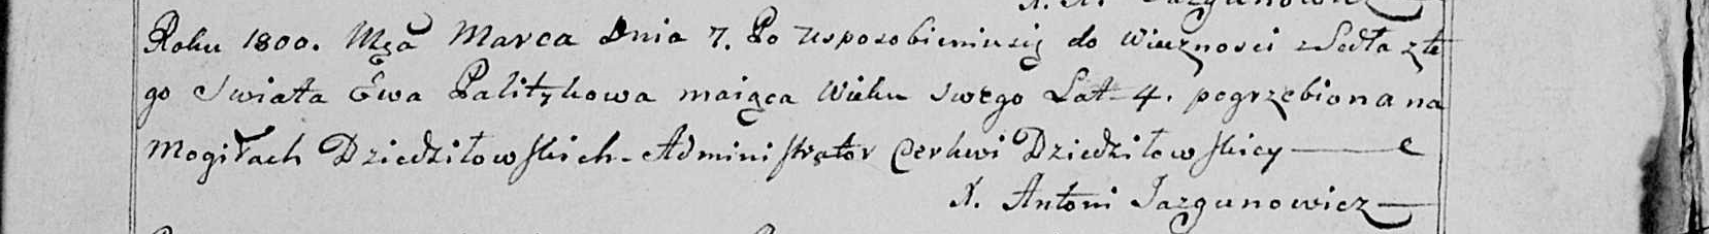 X. A. Jazgunowicz
Roku 1800. Mςa Marca Dnia 7. Po usposobieniusię do Wieczności zeszła z te
go Swiata Ewa Palitykowa maiąca Wieku swego Lat 4. pogrzebiona na
Mogiłach Dziedziłowskich - Administrator Cerkwi Dziedziłowskiey
X. Antoni Jazgunowicz